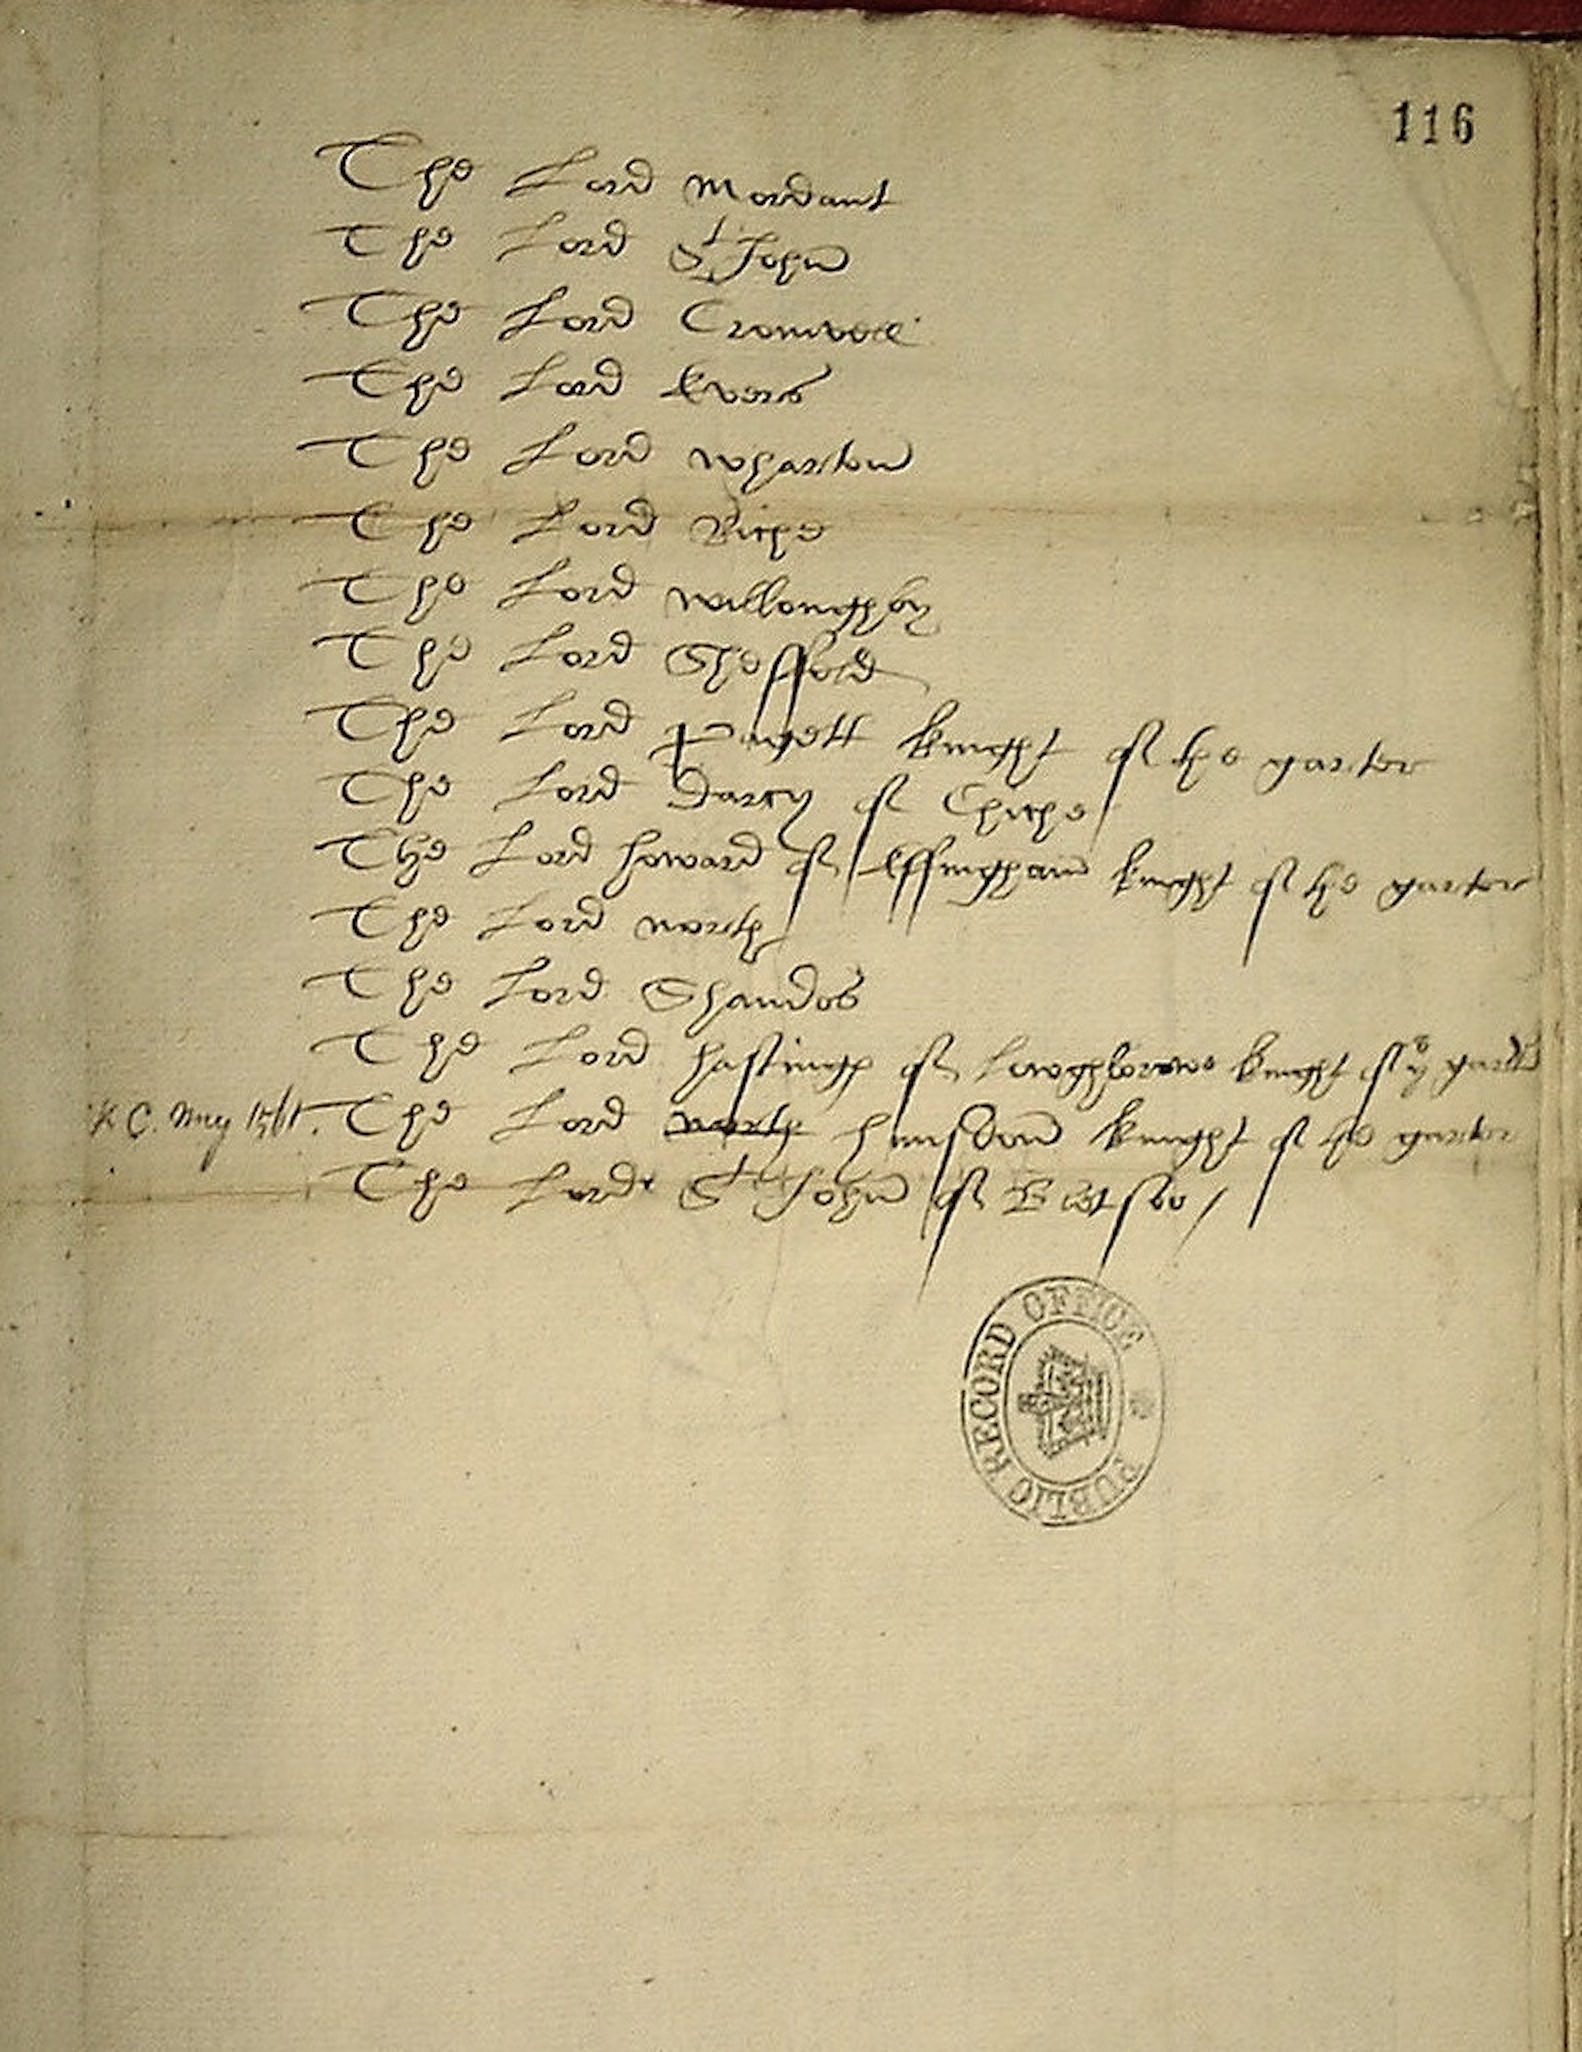 116
The Lord Mordant
The Lord St John
The Lord Cromwell
The Lord Evers
The Lord Wharton
The Lord Riche
The Lord Willoughby
The Lord Sheffeld
The Lord Pagett knight of the garter
The Lord Darcy of Chiche
The Lord Howard of Effingham knight of the garter
The Lord North
The Lord Shandos
The Lord Hastings of Lowghborowe knight of ye garter
May 1561. The Lord North Hunsdon knight of the garter
The Lord St John of Bletsoo /
PUBLIC RECORD OFFICE